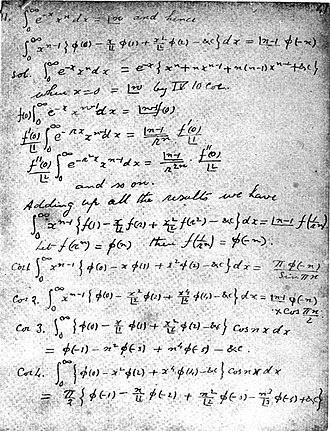 ∫₀^∞ e^{-x} x^n dx = |n and hence
∫₀^∞ x^{n-1} {φ(0) - x/|1 φ(1) + x²/|2 φ(2) - &c} dx = |n-1 φ(-n)
Sol. ∫₀^∞ e^{-x} x^n dx = e^{-x} {x^n + n x^{n-1} + n(n-1) x^{n-2} + &c}
when x=0 = |n by IV 10 Cor.
f(0) ∫₀^∞ e^{-x} x^{n-1} dx = |n-1 f(0)
f'(0)/|1 ∫₀^∞ e^{-rx} x^{n-1} dx = |n-1/r^n · f'(0)/|1
f''(0)/|2 ∫₀^∞ e^{-r²x} x^{n-1} dx = |n-1/r^{2n} · f''(0)/|2
and so on.
Adding up all the results we have
∫₀^∞ x^{n-1} {f(1) - x/|1 f(r) + x²/|2 f(r²) - &c} dx = |n-1 f(1/r^n)
Let f(r^n) = φ(n) then f(1/r^n) = φ(-n).
Cor 1. ∫₀^∞ x^{n-1} {φ(0) - x φ(1) + x² φ(2) - &c} dx = π φ(-n)/Sin πn
Cor 2. ∫₀^∞ x^{n-1} {φ(0) - x²/|2 φ(2) + x⁴/|4 φ(4) - &c} dx = |n-1 φ(-n) × Cos πn/2
Cor 3. ∫₀^∞ {φ(0) - x/|1 φ(1) + x²/|2 φ(2) - &c} Cos nx dx
= φ(-1) - n² φ(-3) + n⁴ φ(-5) - &c.
Cor 4. ∫₀^∞ {φ(0) - x² φ(2) + x⁴ φ(4) - &c} Cos nx dx
= π/2 {φ(-1) - n/|1 φ(-2) + n²/|2 φ(-3) - n³/|3 φ(-4) + &c}